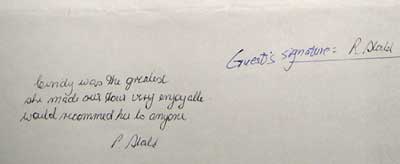 Guest's signature: R. Stahl
Cindy was the greatest
she made our tour very enjoyable
would recommed her to anyone
R Stahl